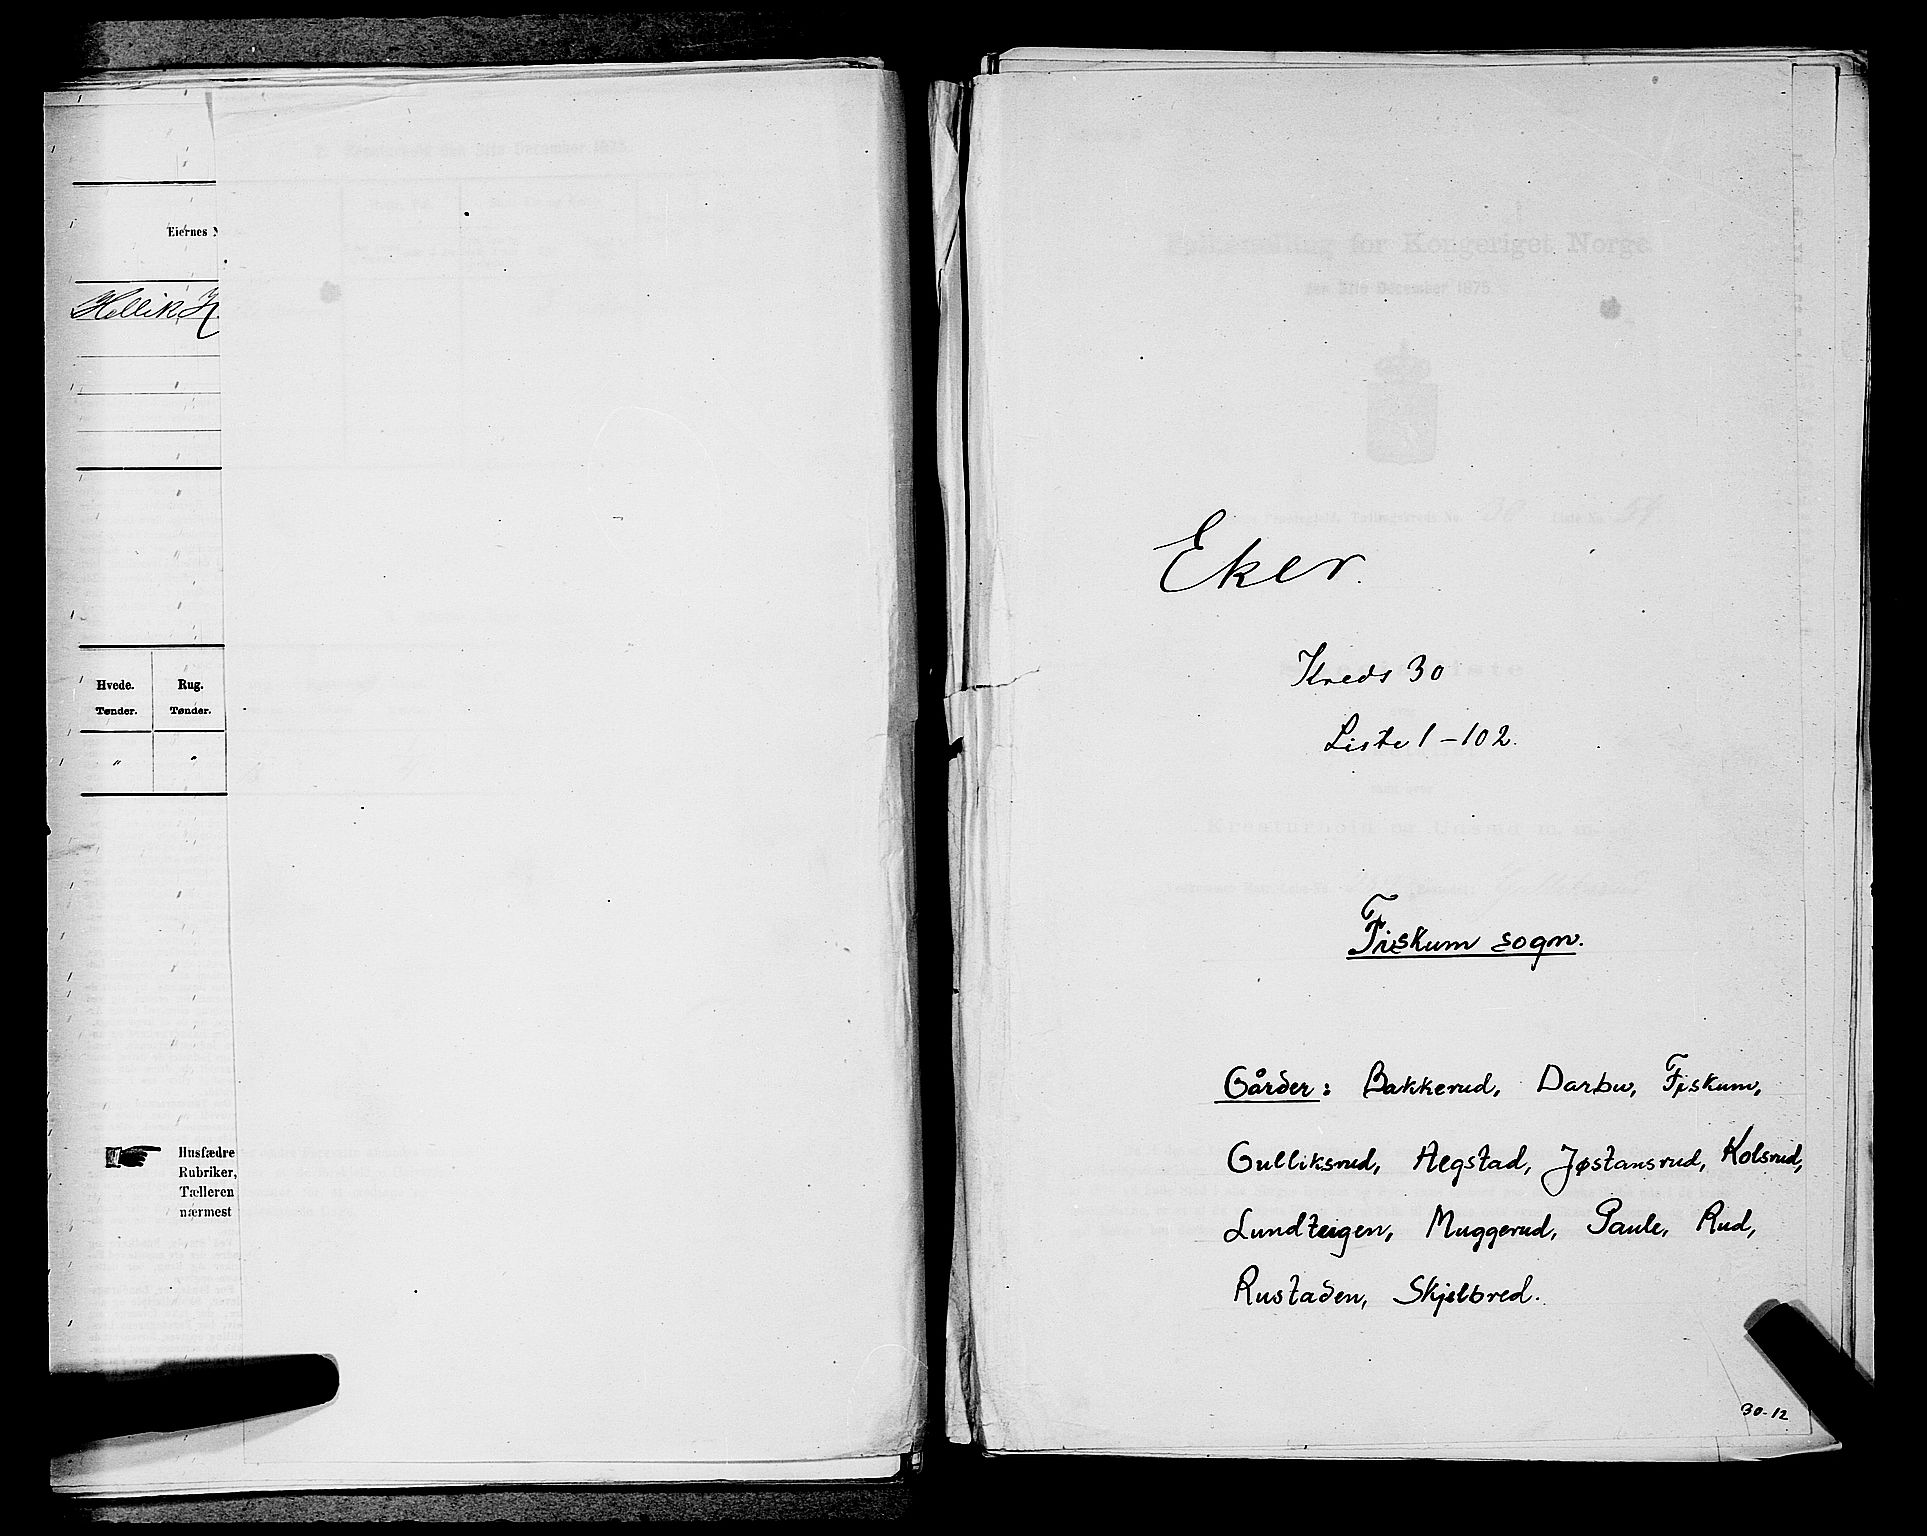 Eiernes
Hellik H.
Hvede. Rug.
Tønder. Tønder.
" "
Husfædre
Rubriker,
Tælleren
nærmest
Folketælling for Kongeriget Norge
den 31te December 1875.
Eker.
Kreds 30
Liste 1-102.
Kreaturhold og Udsæd m. m.
Fiskum sogn.
Gårder: Bakkerud, Darbu, Fiskum,
Gulliksrud, Aegstad, Jøstansrud, Kolsrud,
Lundteigen, Muggerud, Paule, Rud,
Rustaden, Skjelbred.
30-12